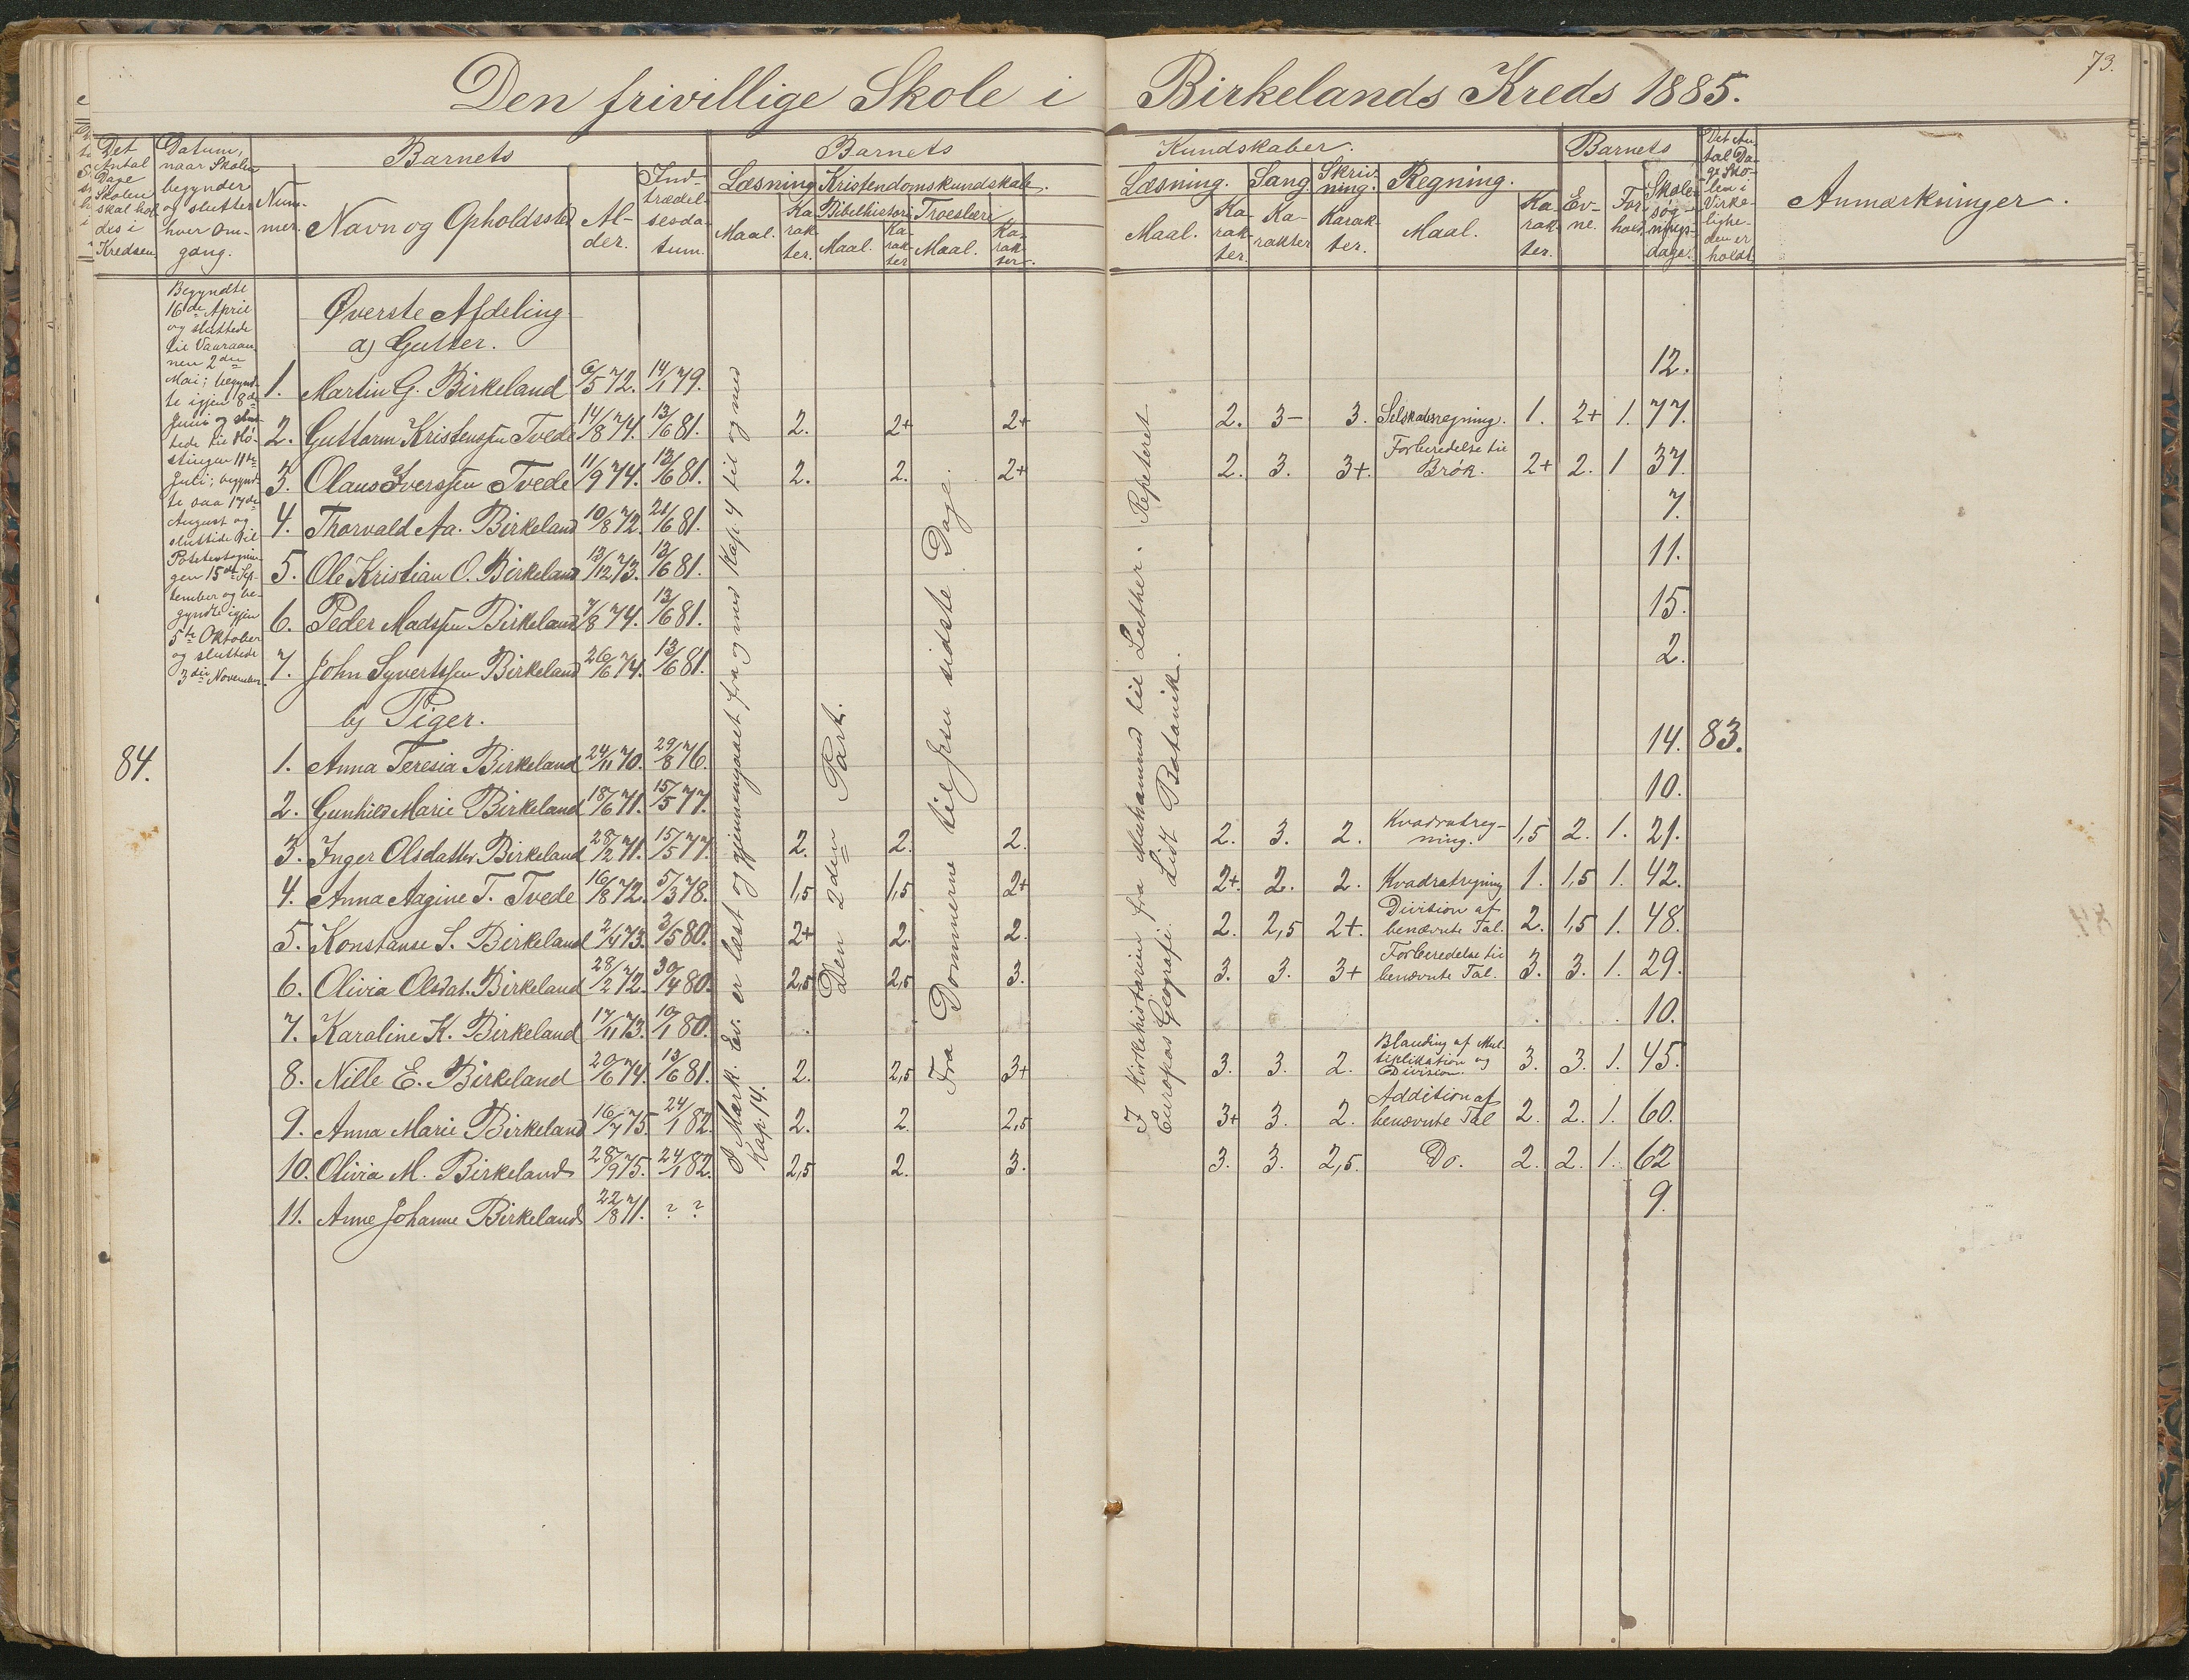 Den frivillige Skole i Birkelands Kreds 1885.
73.
Det Antal Dage Skolen skal holdes i Kredsen.
Datum, naar Skolen begynder og slutter hver Omgang.
Barnets
Nummer.
Navn og Opholdssted
Alder.
Indtrædelsesdatum.
Barnets
Læsning
Kristendomskundskab.
Maal.
Karakter.
Bibelhistorie
Maal.
Karakter
Troeslære
Maal.
Karakter.
Kundskaber.
Læsning.
Maal.
Karakter.
Sang
Karakter
Skrivning.
Karakter.
Regning.
Maal.
Karakter.
Barnets
Evne.
Forhold
Skolesøgningsdage.
Det Antal Dage Skolen i Virkeligheden er holdt
Anmærkninger.
Begyndte
16de April
og sluttede
til Vaaraan
nen 2den
Mai; begynd-
te igjen 8de
Juni og slut
tede til Hø-
stingen 11te
Juli; begynd
te saa 17de
August og
sluttede til
Potetestagnin
gen 15de Sep-
tember og be-
gyndte igjen
5te Oktober
og sluttede
3die November.
Øverste Afdeling
a) Gutter.
1. Martin G. Birkeland 6/5 72. 14/1 79. 12.
2. Guttorm Kristenssen Tvede 14/8 74. 13/6 81. 2. 2+ 2+ 2. 3- 3. Selskabsregning. 1. 2+ 1. 77.
3. Olaus Iverssen Tvede 11/9 74. 13/6 81. 2. 2. 2+ 2. 3. 3+ Forberedelse til Brøk. 2+ 2. 1 37.
4. Thorvald Aa. Birkeland 10/8 72. 21/6 81. 7.
5. Ole Kristian O. Birkeland 13/12 73. 13/6 81. 11.
6. Peder Madssen Birkeland 7/8 74. 13/6 81. 15.
7. John Syvertssen Birkeland 26/6 74. 13/6 81. 2.
b) Piger.
84.
1. Anna Teresia Birkeland 24/11 70. 29/8 76. 14. 83.
2. Gunhild Marie Birkeland 18/6 71. 15/5 77. 10.
3. Inger Olsdatter Birkeland 28/2 71. 15/5 77. 2. 2. 2. 2. 3. 2. Kvadratreg-ning. 1,5 2. 1. 21.
4. Anna Aagine T. Tvede 16/8 72. 5/3 78. 1,5 1,5 2+ 2+. 2. 2. Kvadratregning 1. 1,5 1. 42.
5. Konstanse S. Birkeland 2/4 73. 3/5 80. 2+ 2. 2. 2. 2,5 2+. Division af benævnte Tal. 2. 1,5 1. 48.
6. Olivia Olsdat. Birkeland 28/2 72. 30/4 80. 2,5 2,5 3. 3. 3. 3+ Forberedelse til benævnte Tal. 3. 3. 1. 29.
7. Karoline K. Birkeland 17/11 73. 10/1 80. 10.
8. Nille E. Birkeland 20/6 74. 13/6 81. 2. 2,5 3+ 3. 3. 2. Blanding af Multiplikation og Division. 3. 3. 1. 45.
9. Anna Marie Birkeland 16/7 75. 24/1 82. 2. 2. 2,5 3+ 3. 2. Addition af benævnte Tal 2. 2. 1. 60.
10. Olivia M. Birkeland 28/9 75. 24/1 82. 2,5 2. 3. 3. 3. 2,5. Do. 2. 2. 1. 62
11. Anne Johanne Birkeland 22/8 71. ? ? 9.
I Mark. Ev. er læst og gjennemgaaet fra og med Kap. 4 til og med
Kap. 14.
Den 2den Part.
Fra Dommerne til Jesu sidste Dage.
I Kirkehistorien fra Muhammed til Luther. Repeteret
Europas Geografi. Lidt Botanik.